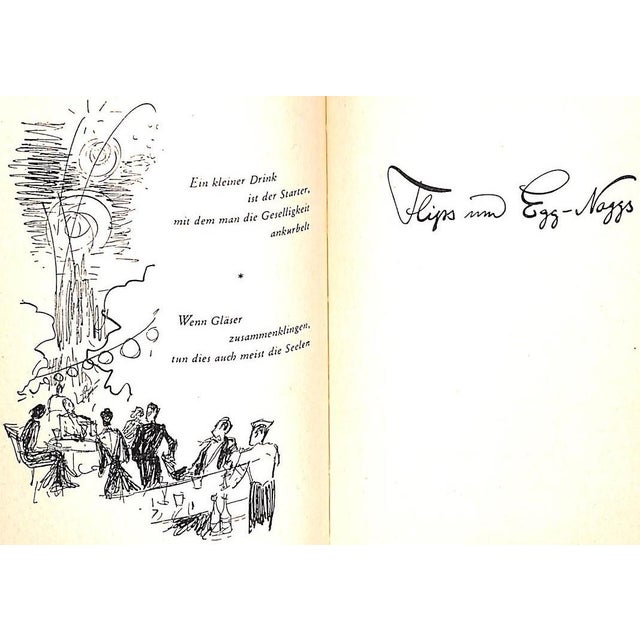 Ein kleiner Drink
ist der Starter,
mit dem man die Geselligkeit
ankurbelt
*
Wenn Gläser
zusammenklingen,
tun dies auch meist die Seelen
Flips und Egg-Noggs